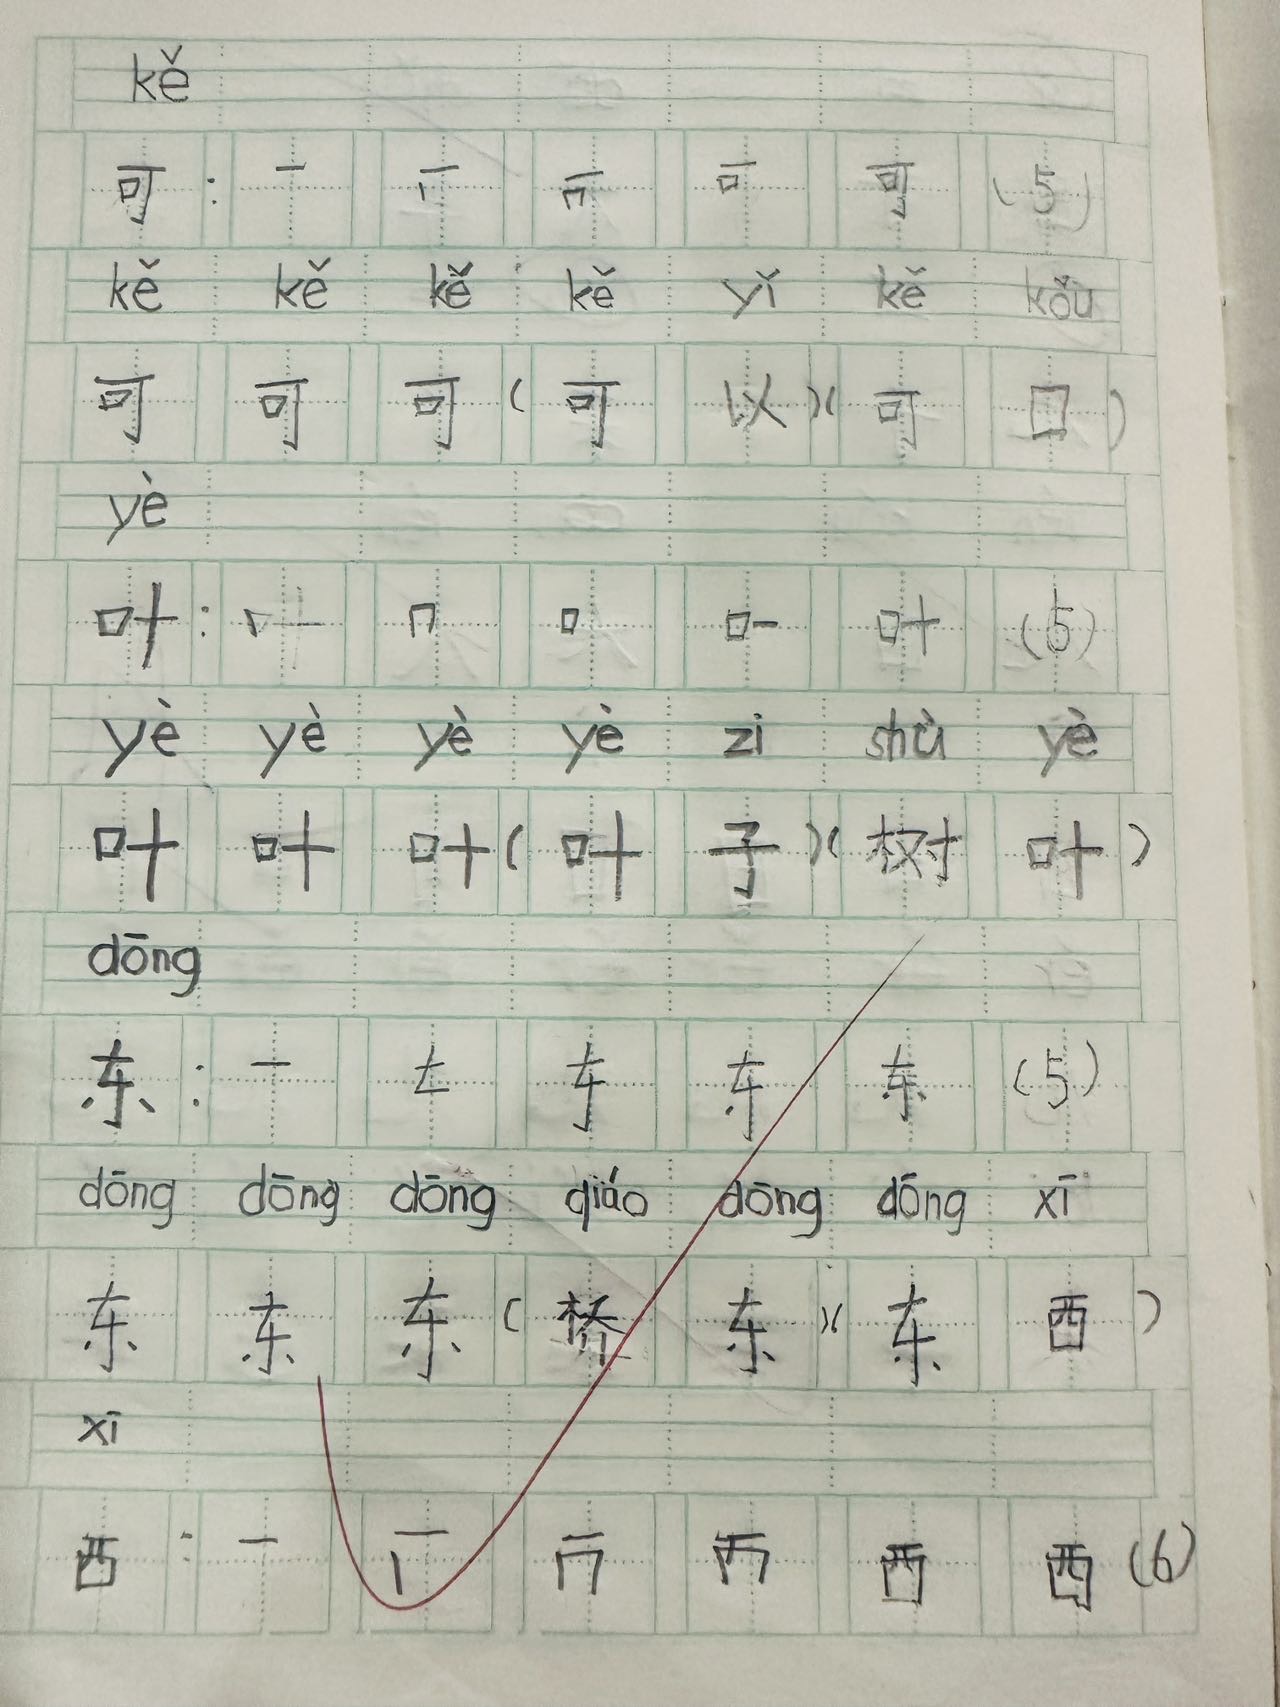 kě
可：一 丅 (5)
kě kě kě kě yǐ kě kǒu
可 可 可（可 以）（可 口）
yè
叶： 口 叶 (5)
yè yè yè yè zi shù yè
叶 叶 叶（叶 子）（树 叶）
dōng
东：一 东 (5)
dōng dōng dōng qiáo dōng dōng xī
东 东 东（桥 东）（东 西）
xī
西：一 丆 西 (6)